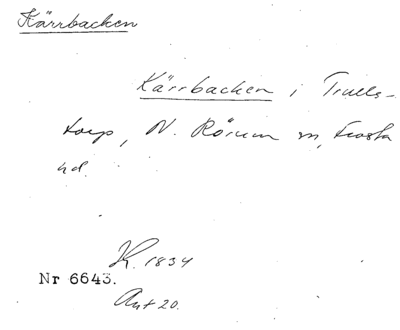 Kärrbacken
Kärrbacken i Trulls-
torp, N. Rörum sn, Frosta
hd.
K. 1834
Nr 6643.
Avt 20.